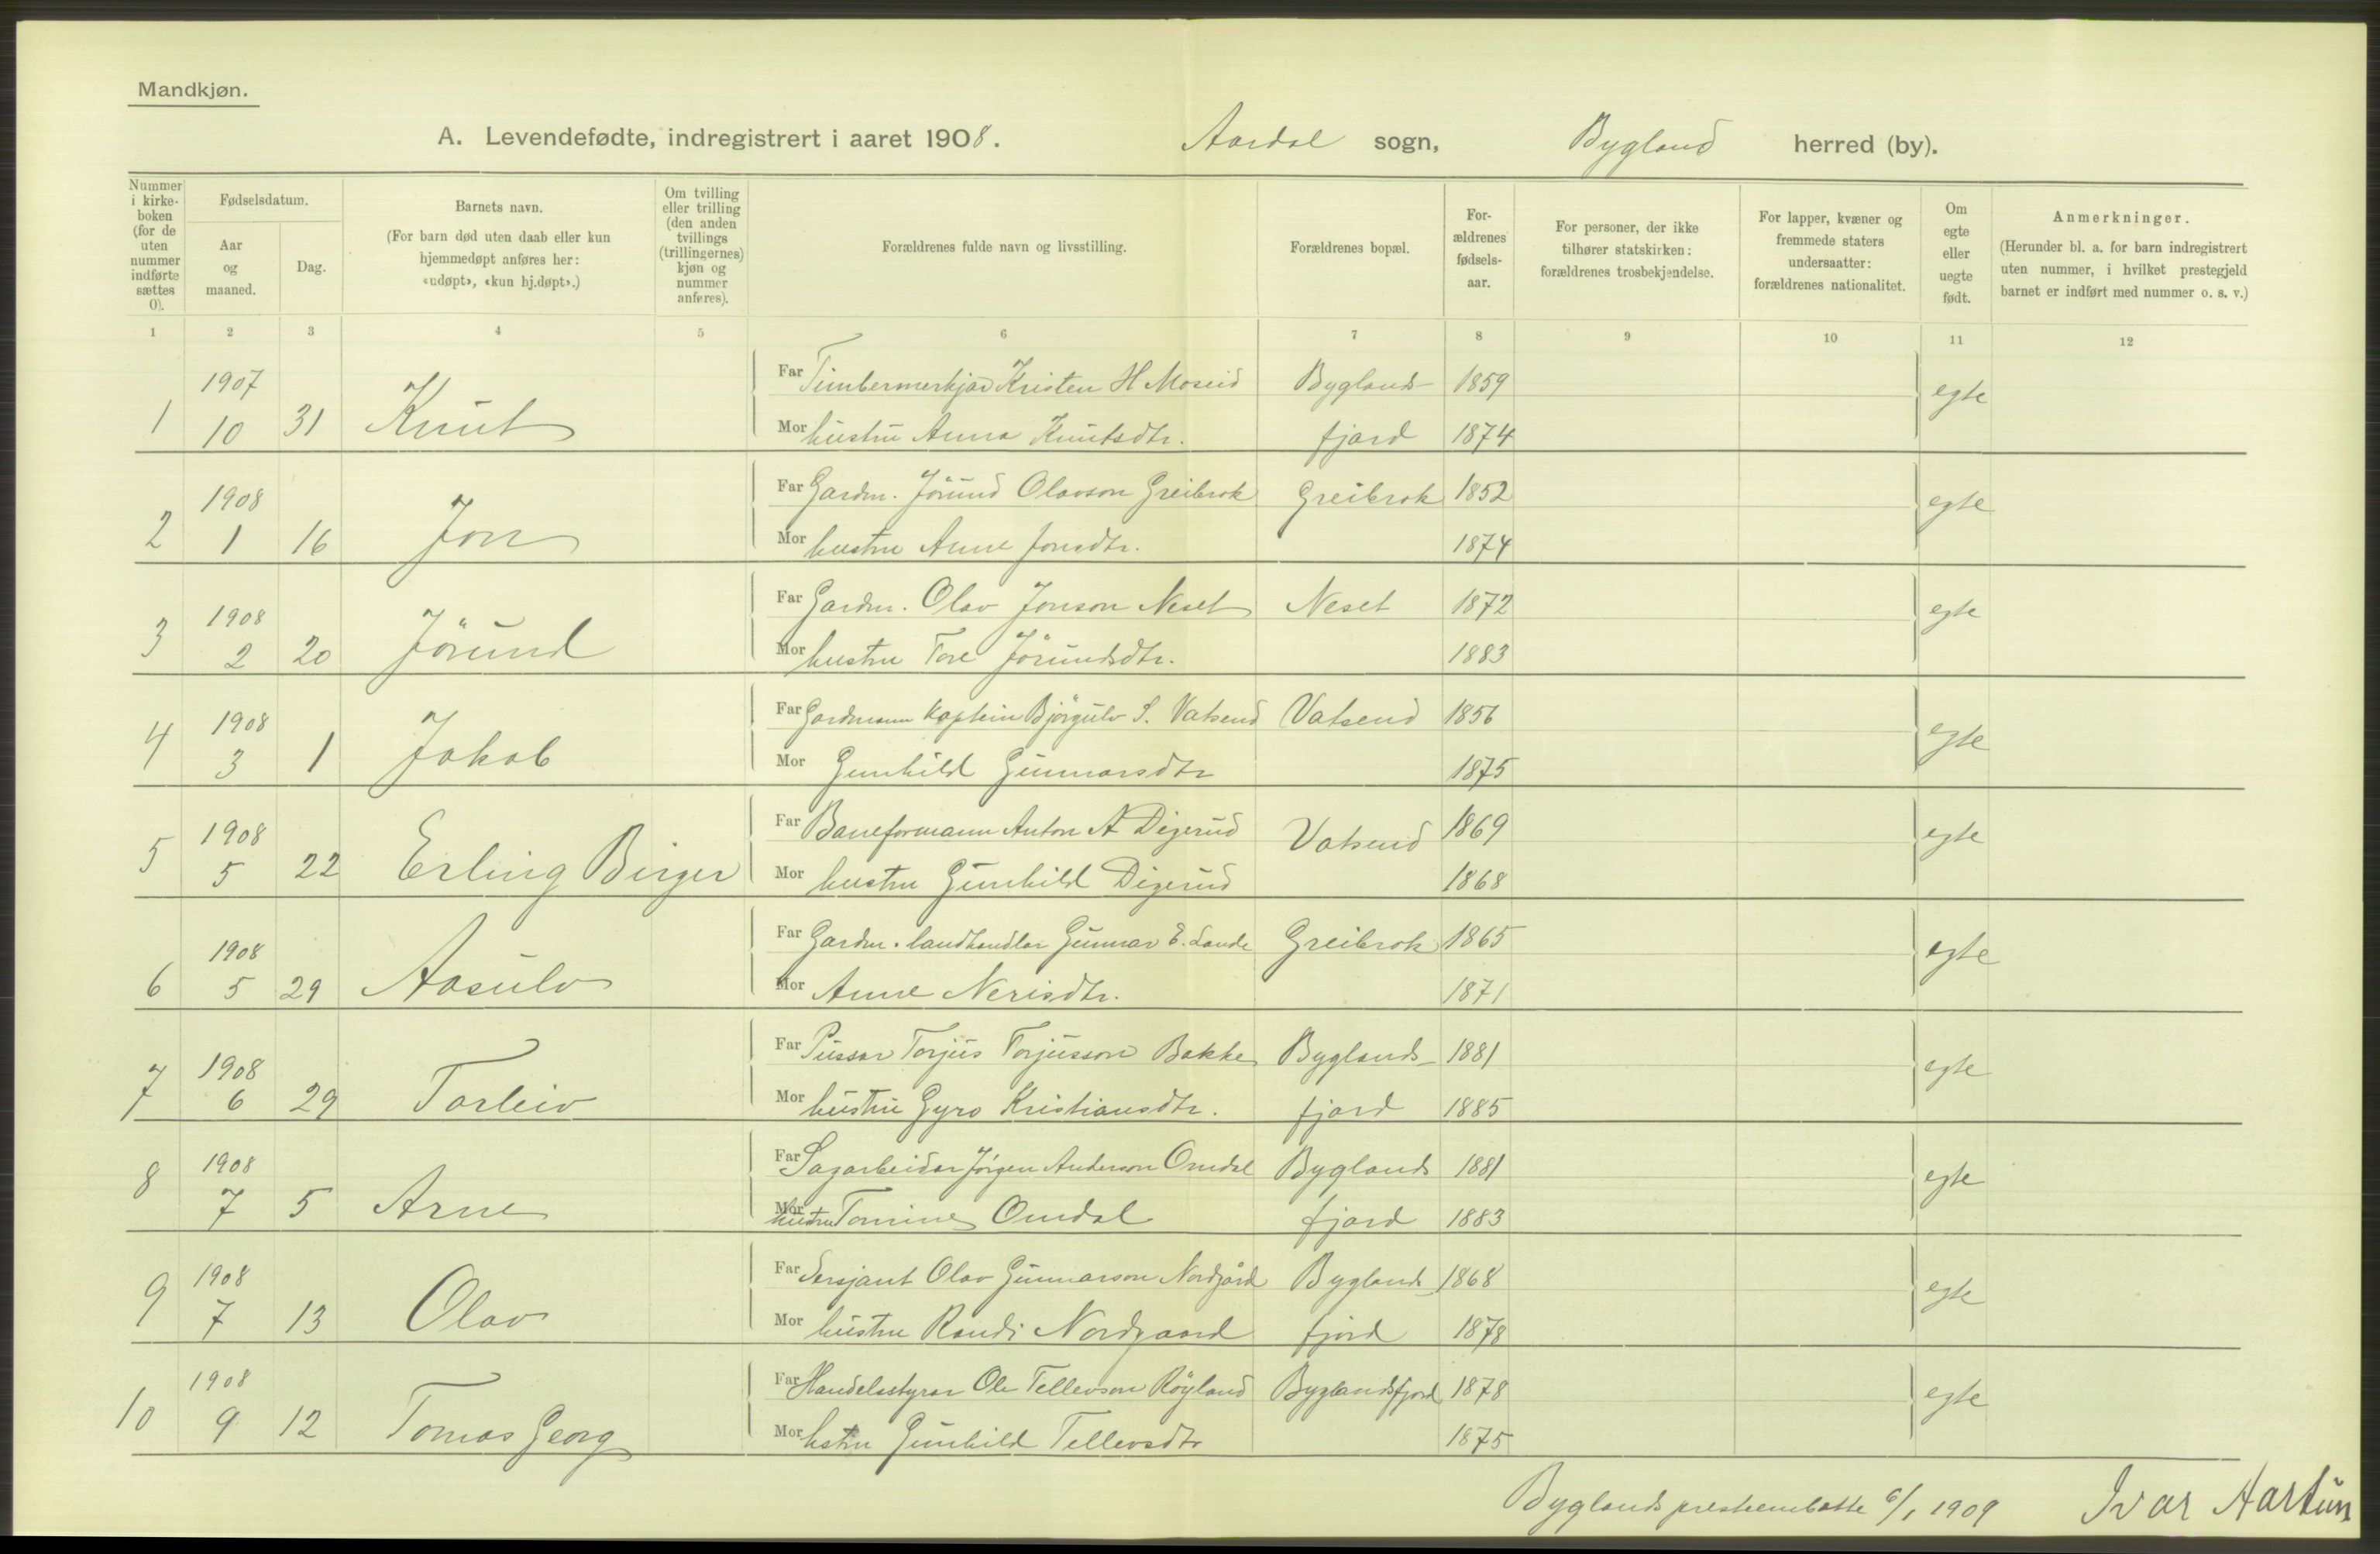 Mandkjøn.
A. Levendefødte, indregistrert i aaret 1908. Aardal sogn, Bygland herred (by).
Nummer i kirke-boken (for de uten nummer indførte sættes 0).
Fødselsdatum.
Aar og maaned.
Dag.
Barnets navn.
(For barn død uten daab eller kun hjemmedøpt anføres her: «udøpt», «kun hj.døpt».)
Om tvilling eller trilling (den anden tvillings (trillingernes) kjøn og nummer anføres).
Forældrenes fulde navn og livsstilling.
Forældrenes bopæl.
For-ældrenes fødsels-aar.
For personer, der ikke tilhører statskirken: forældrenes trosbekjendelse.
For lapper, kvæner og fremmede staters undersaatter: forældrenes nationalitet.
Om egte eller uegte født.
Anmerkninger.
(Herunder bl. a. for barn indregistrert uten nummer, i hvilket prestegjeld barnet er indført med nummer o. s. v.)
1 2 3 4 5 6 7 8 9 10 11 12
1907 Far Timbermerkjar Kristen H Moseid Byglands- 1859 egte
1 10 31 Knut Mor hustru Anna Knutsdtr. fjord 1874
1908 Far Gardm. Jörund Olavson Greibrok Greibrok 1852 egte
2 1 16 Jon Mor hustru Anne Jonsdtr. 1874
1908 Far Gardm. Olav Jonson Neset Neset 1872 egte
3 2 20 Jörund Mor hustru Tore Jörundsdtr. 1883
1908 Far Gardmann kaptein Björgulv S. Vatsend Vatsend 1856 egte
4 3 1 Jakob Mor Gunhild Gunnarsdtr 1875
1908 Far Baneformann Anton A Digerud Vatsend 1869 egte
5 5 22 Erling Birger Mor hustru Gunhild Digerud 1868
1908 Far Gardm. landhandlar Gunnar E. Lande Greibrok 1865 egte
6 5 29 Aasulv Mor Anne Nerisdtr. 1871
1908 Far Pussar Torjus Torjusson Bakke Byglands- 1881 egte
7 6 29 Torleiv Mor hustru Gyro Kristiansdtr. fjord 1885
1908 Far Sagarbeidar Jörgen Anderson Omdal Byglands 1881 egte
8 7 5 Arne Mor hustru Tomine Omdal fjord 1883
1908 Far Sersjant Olav Gunnarson Nordgård Byglands- 1868 egte
9 7 13 Olav Mor hustru Randi Nordgaard fjord 1878
1908 Far Handelsstyrar Ole Tellevson Röyland Byglandsfjord 1878 egte
10 9 12 Tomas Georg Mor hstru Gunhild Tellevsdtr 1875
Byglands presteembætte 6/1 1909 Ivar Aartun